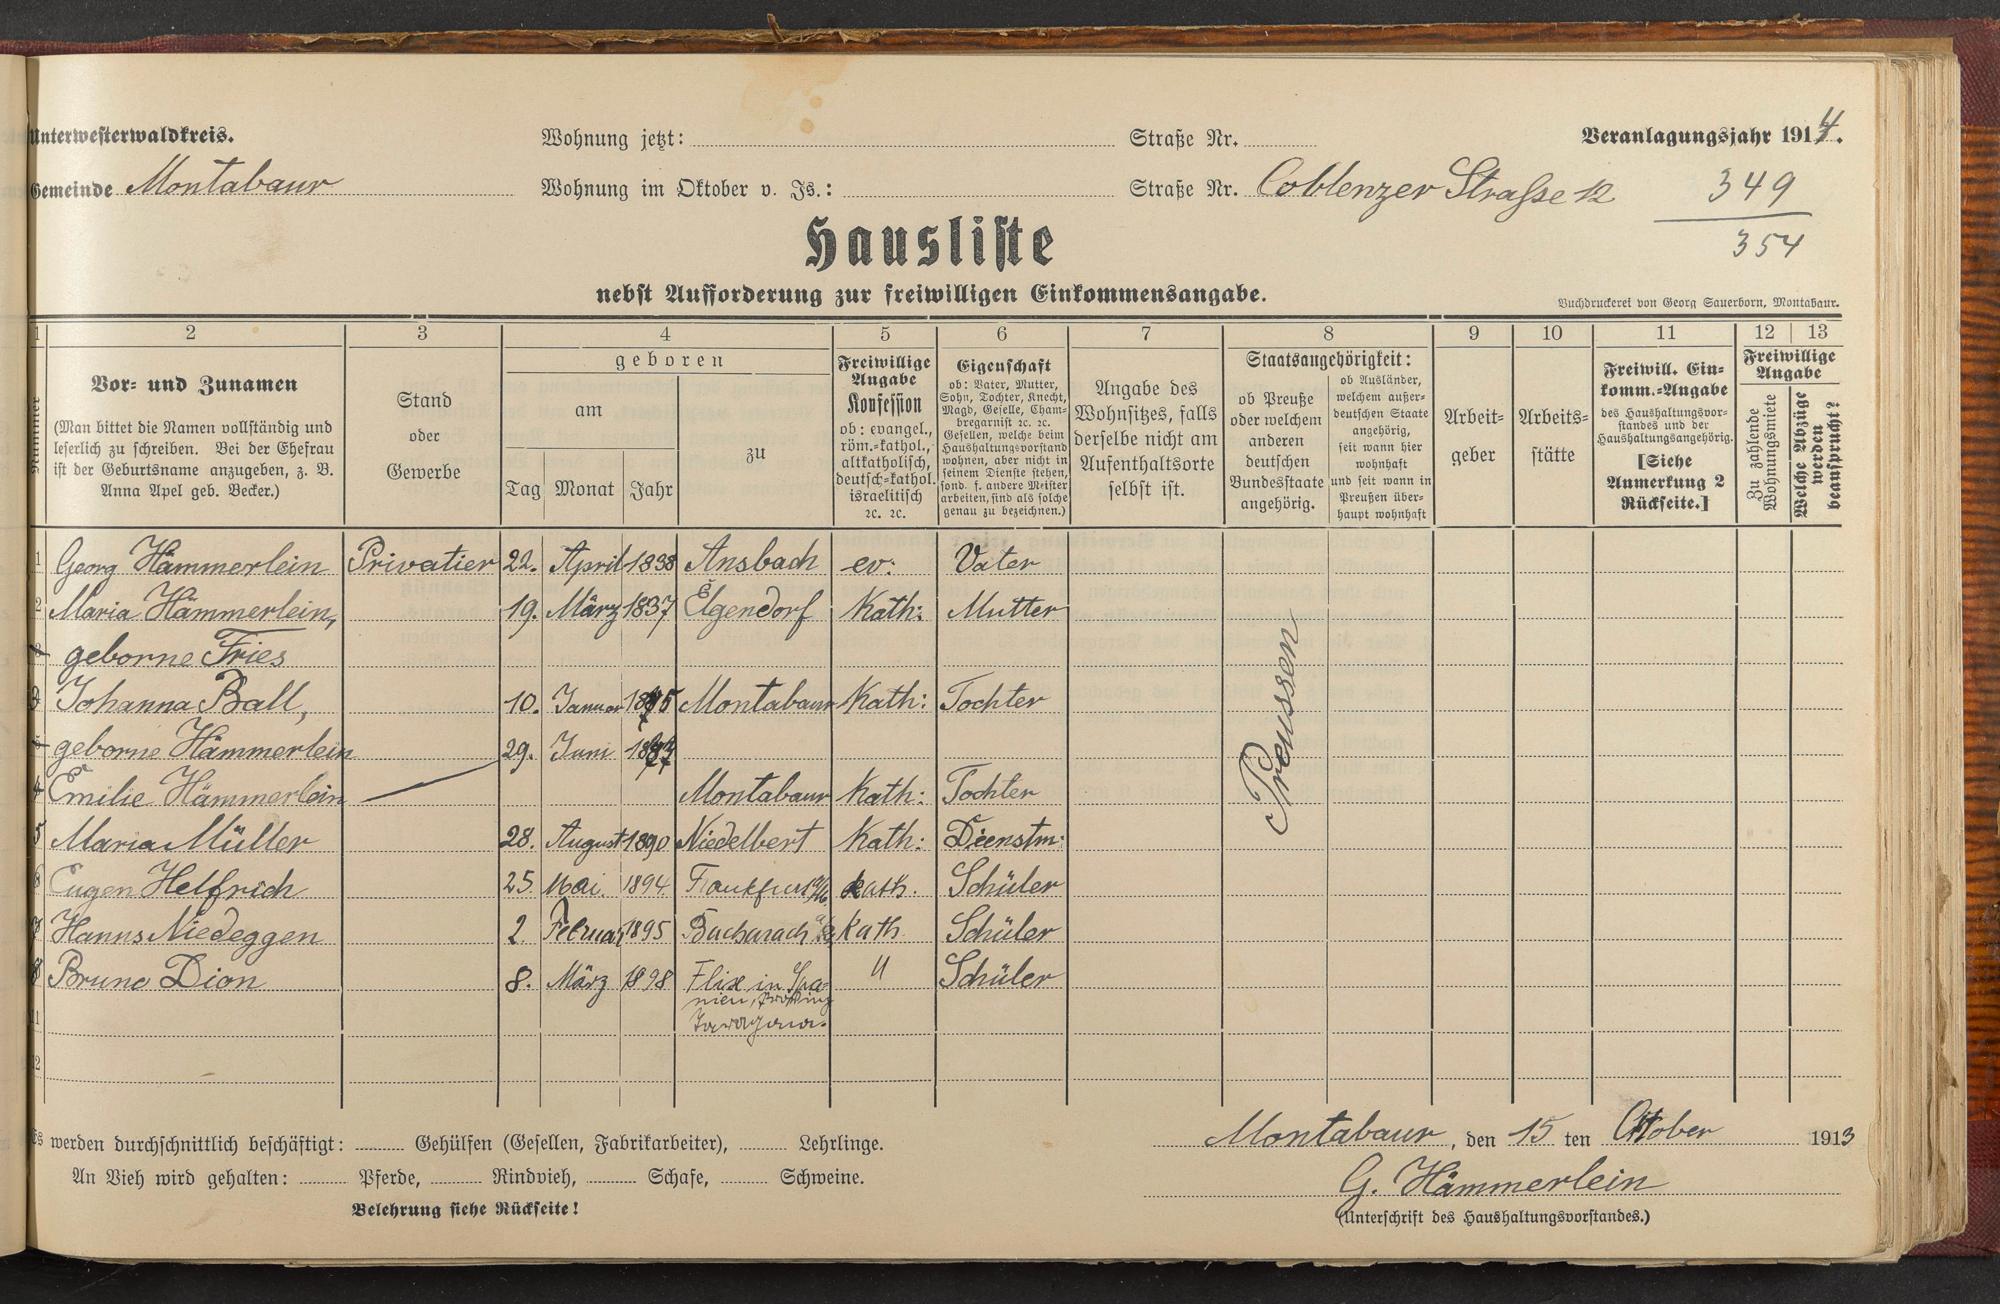 Unterwesterwaldkreis.
Wohnung jetzt: Straße Nr.
Veranlagungsjahr 1914.
Gemeinde Montabaur
Wohnung im Oktober v. Js.: Straße Nr. Coblenzer Strasse 12
349
354
Hausliste
nebst Aufforderung zur freiwilligen Einkommensangabe.
Buchdruckerei von Georg Sauerborn, Montabaur.
1 2 3 4 5 6 7 8 9 10 11 12 13
Nummer
Vor- und Zunamen
(Man bittet die Namen vollständig und
leserlich zu schreiben. Bei der Ehefrau
ist der Geburtsname anzugeben, z. B.
Anna Apel geb. Becker.)
Stand
oder
Gewerbe
geboren
am
Tag Monat Jahr
zu
Freiwillige
Angabe
Konfession
ob: evangel.,
röm.-kathol.,
altkatholisch,
deutsch-kathol.
israelitisch
ꝛc. ꝛc.
Eigenschaft
ob: Vater, Mutter,
Sohn, Tochter, Knecht,
Magd, Geselle, Cham-
bregarnist ꝛc. ꝛc.
Gesellen, welche beim
Haushaltungsvorstand
wohnen, aber nicht in
seinem Dienste stehen,
sond. f. andere Meister
arbeiten, sind als solche
genau zu bezeichnen.)
Angabe des
Wohnsitzes, falls
derselbe nicht am
Aufenthaltsorte
selbst ist.
Staatsangehörigkeit:
ob Preuße
oder welchem
anderen
deutschen
Bundesstaate
angehörig.
ob Ausländer,
welchem außer-
deutschen Staate
angehörig,
seit wann hier
wohnhaft
und seit wann in
Preußen über-
haupt wohnhaft
Arbeit-
geber
Arbeits-
stätte
Freiwill. Ein-
komm.-Angabe
des Haushaltungsvor-
standes und der
Haushaltungsangehörig.
[Siehe
Anmerkung 2
Rückseite.]
Freiwillige
Angabe
Zu zahlende
Wohnungsmiete
Welche Abzüge
werden
beansprucht?
1 Georg Hämmerlein Privatier 22. April 1838 Ansbach ev: Vater
2 Maria Hämmerlein, 19. März 1837 Elgendorf Kath: Mutter
geborne Fries
3 Johanna Ball, 10. Januar 1875 Montabaur Kath: Tochter
geborne Hämmerlein 29. Juni
4 Emilie Hämmerlein Montabaur Kath: Tochter
5 Maria Müller 28. August 1890 Niedelbert Kath: Dienstm:
6 Eugen Helfrich 25. Mai. 1894 Frankfurt a/M. Kath. Schüler
7 Hanns Niedeggen 2. Februar 1895 Bacharach Kath Schüler
8 Bruno Dion 8. März 1898 Flix in Spa- " Schüler
nien, Provinz
Taragona.
11
12
Preussen
Es werden durchschnittlich beschäftigt: Gehülfen (Gesellen, Fabrikarbeiter), Lehrlinge.
An Vieh wird gehalten: Pferde, Rindvieh, Schafe, Schweine.
Belehrung siehe Rückseite!
Montabaur, den 15 ten Oktober 1913
G. Hämmerlein
(Unterschrift des Haushaltungsvorstandes.)